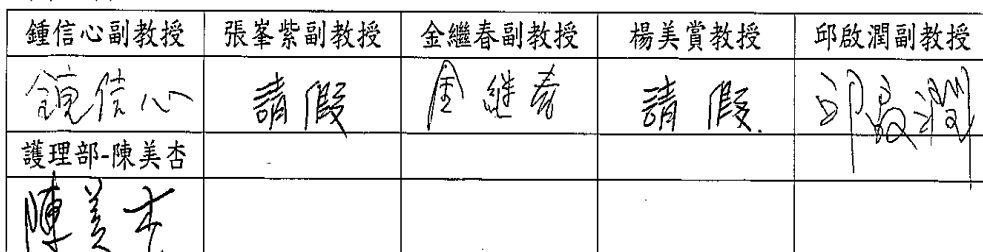 鍾信心副教授 張峯紫副教授 金繼春副教授 楊美賞教授 邱啟潤副教授
鍾信心 請假 金継春 請假. 邱啟潤
護理部-陳美杏
陳美杏